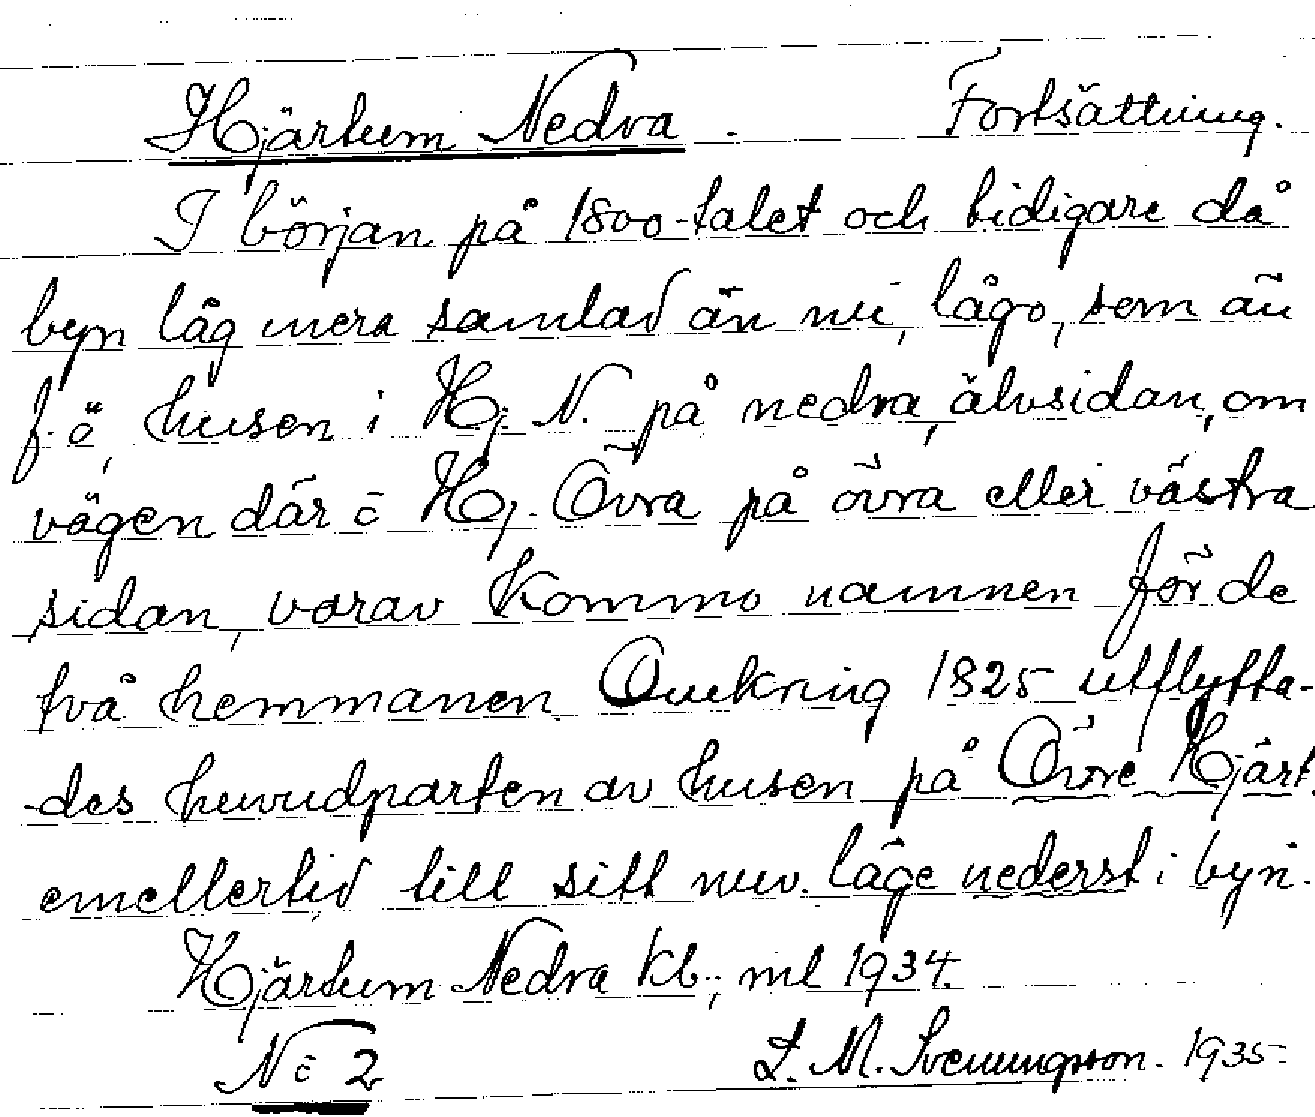 Hjärtum Nedra. Fortsättning.
I början på 1800-talet och tidigare då
byn låg mera samlad än nu, lågo, som än
f. ö., husen i Hj. N. på nedra, älvsidan, om
vägen där o Hj. Övra på övra eller västra
sidan, varav kommo namnen för de
två hemmanen. Omkring 1825 utflytta-
-des huvudparten av husen på Övre Hjärt.
emellertid till sitt nuv. läge nederst i byn.
Hjärtum Nedra kb.; ml 1934.
No 2 L. M. Svenungsson. 1935.